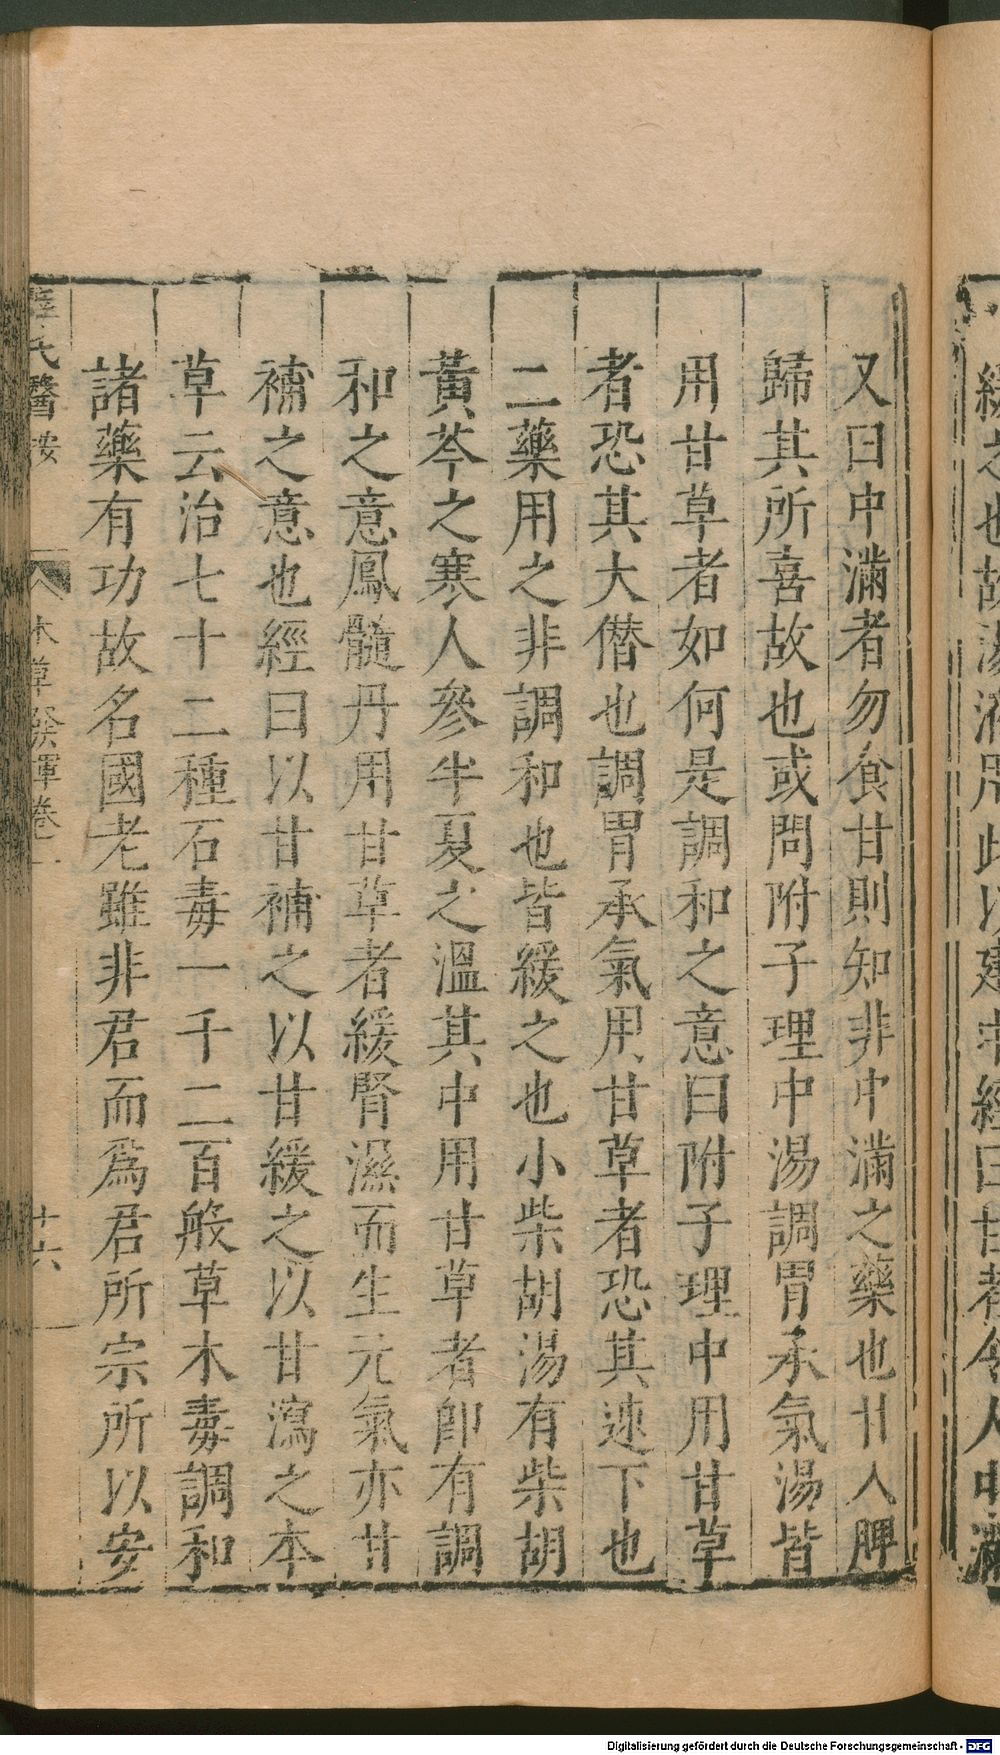 緩之也故湯液用此以建中經曰甘者令人中滿
又曰中滿者勿食甘則知非中滿之藥也甘入脾
歸其所喜故也或問附子理中湯調胃承氣湯皆
用甘草者如何是調和之意曰附子理中用甘草
者恐其大僭也調胃承氣用甘草者恐其速下也
二藥用之非調和也皆緩之也小柴胡湯有柴胡
黃芩之寒人參半夏之溫其中用甘草者卽有調
和之意鳳髓丹用甘草者緩腎濕而生元氣亦甘
補之意也經曰以甘補之以甘緩之以甘瀉之本
草云治七十二種石毒一千二百般草木毒調和
諸藥有功故名國老雖非君而爲君所宗所以安
薛氏醫按 本草發揮卷一 廿六
Digitalisierung gefördert durch die Deutsche Forschungsgemeinschaft - DFG